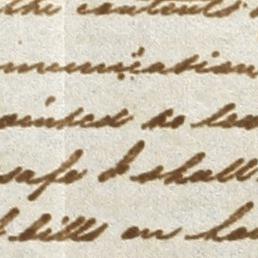 the contents
munication
ointed to
safe I shall
bills on